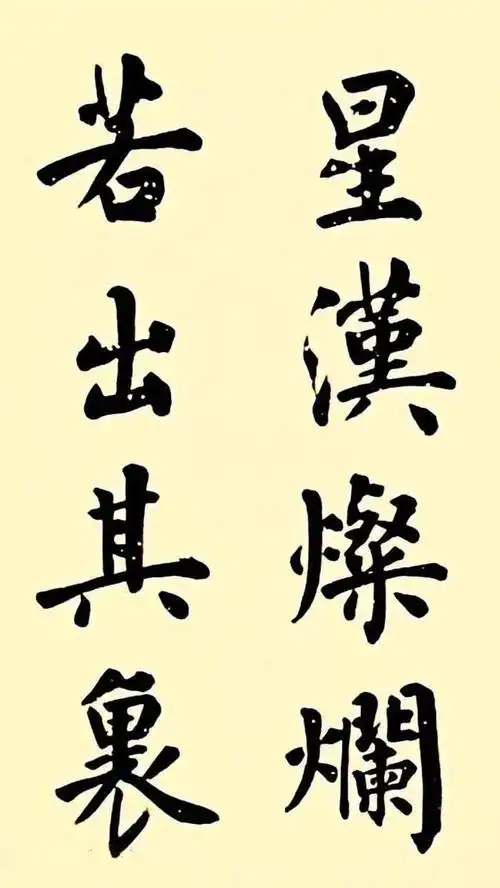 星漢燦爛
若出其裏